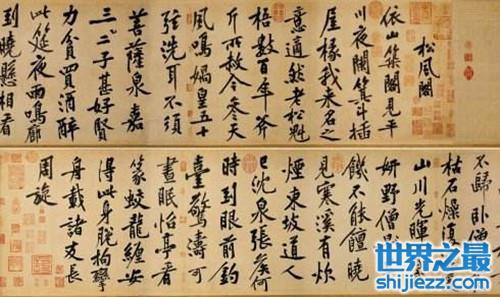 松風閣
依山築閣見平
川夜闌箕斗插
屋椽我來名之
意適然老松魁
梧數百年斧
斤所赦今參天
風鳴媧皇五十
弦洗耳不須
菩薩泉嘉
三二子甚好賢
力貧買酒醉
此筵夜雨鳴廊
到曉懸相看
不歸臥僧
枯石燥復
山川光暉
妍野僧
饑不能饘曉
見寒溪有炊
煙東坡道人
已沈泉張侯何
時到眼前釣
臺驚濤可
晝眠怡亭看
篆蛟龍纏安
得此身脫拘攣
舟載諸友長
周旋
世界之最